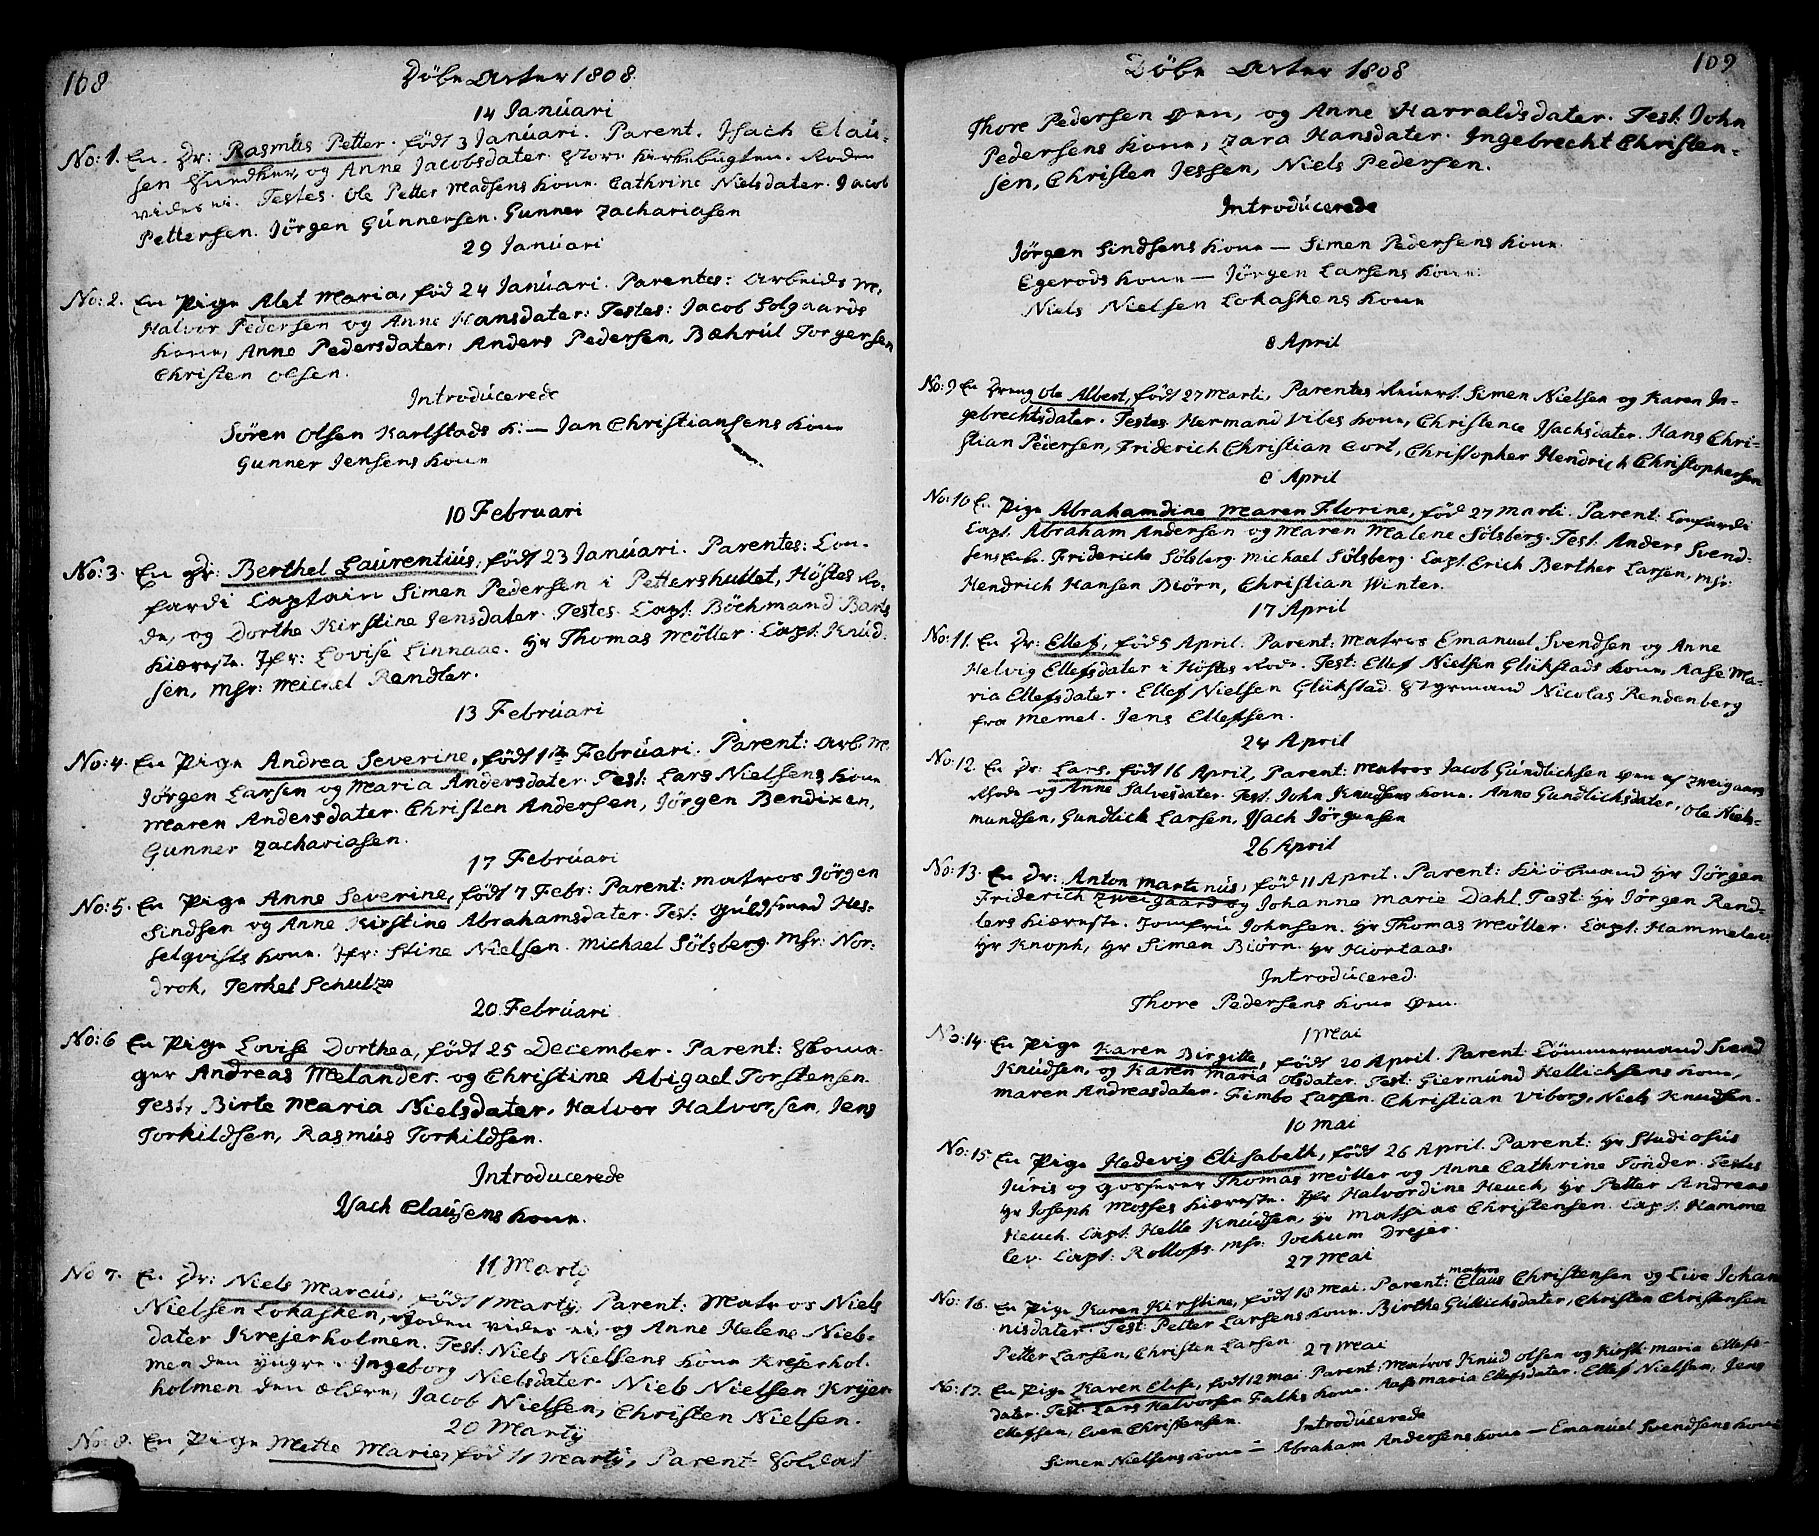 168
Döbe Acter 1808
14 Januari
No: 1. En Dr: Rasmus Petter. födt 3 Januari. Parent. Isach Clau-
sen Sundker, og Anne Jacobsdater Store Kirkebugten. Roden
vides ei. Testes. Ole Petter Madsens Kone. Cathrine Nielsdater. Jacob
Pettersen. Jörgen Gunnersen. Gunner Zachariasen
29 Januari
No: 2. En Pige Alet Maria, föd 24 Januari. Parentes: Arbeids M.
Halvor Pedersen og Anne Hansdater. Testes: Jacob Solgaards
Kone, Anne Pedersdater, Anders Pedersen, Bæhrul Torgersen
Christen Olsen.
Introducerede
Sören Olsen Karlstads K: — Jan Christiansens Kone
Gunner Jensens Kone
10 Februari
No: 3. En Dr: Berthel Laurentius, födt 23 Januari. Parentes: Con-
fardi Captain Simen Pedersen i Pettershullet, Höstes Ro-
de, og Dorthe Kirstine Jensdater. Testes. Capt: Böchmand Barts
Kiæreste. Jfr: Lovise Linnaae. Hr Thomas Möller. Capt: Knud-
sen, Msr: Michel Rendler.
13 Februari
No: 4. En Pige Andrea Severine, födt 1ste Februari. Parent: Arb. M.
Jörgen Larsen og Maria Andersdater. Test: Lars Nielsens Kone
Maren Andersdater. Christen Andersen, Jörgen Bendixen,
Gunner Zachariasen.
17 Februari
No: 5. En Pige Anne Severine, födt 7 Febr: Parent: Matros Jörgen
Sindsen og Anne Kirstine Abrahamsdater. Test. Guldsmed Hes-
selqvists Kone. Jfr: Stine Nielsen. Michael Sölsberg. Msr: Nor-
drok, Terkel Schultze
20 Februari
No: 6 En Pige Lovise Dorthea, födt 25 December. Parent: Skoma-
ger Andreas Melander. og Christine Abigael Torstensen.
Test, Birte Maria Nielsdater, Halvor Halvorsen, Jens
Torkildsen, Rasmus Torkildsen.
Introducerede
Isach Clausens Kone.
11 Martÿ
No 7. En Dr: Niels Marcus, födt 1 Martÿ. Parent: Matros Niels
Nielsen Lokasken, Roden vides ei, og Anne Helene Niels-
dater Krejerholmen. Test: Niels Nielsens Kone Krejerhol-
men den yngre. Ingeborg Nielsdater. Niels Nielsen Krÿer-
holmen den ældere, Jacob Nielsen, Christen Nielsen.
20 Martÿ
No: 8. En Pige Mette Marie, föd 11 Martÿ, Parent Soldat
109
Döbe Acter 1808
Thore Pedersen Öen, og Anne Harraldsdater. Test: John
Pedersens Kone, Zara Hansdater. Ingebrecht Christen-
sen, Christen Jessen, Niels Pedersen.
Introducerede
Jörgen Sindsens Kone — Simen Pedersens Kone
Egerods Kone — Jörgen Larsens Kone
Niels Nielsen Lokaskens Kone
8 April
No: 9 En Dreng Ole Albert, födt 27 Marti, Parentes Simen Nielsen og Karen In-
gebrechtsdater. Testes Hermand Vibes Kone, Christence Isachsdater. Hans Chri-
stian Pedersen, Friderich Christian Cort, Christopher Hendrich Christophersen
8 April
No: 10 En Pige Abrahamdine Maren Florine, föd 27 Marti. Parent: Confardi
Capt. Abraham Andersen og Maren Malene Sölsberg. Test. Anders Svend-
sens Enke. Friderica Sölsberg. Michael Sölsberg. Capt. Erich Berther Larsen, Msr:
Hendrich Hansen Biörn, Christian Winter.
17 April
No: 11. En Dr: Ellef, föd 5 April. Parent: Matros Emanuel Svendsen og Anne
Helvig Ellefsdater i Höstes Rode. Test: Ellef Nielsen Glükstads Kone, Aase Ma-
ria Ellefsdater. Ellef Nielsen Glükstad. Styrmand Nicolas Rendenberg
fra Memel. Jens Ellefsen.
24 April
No: 12. En Dr: Lars, födt 16 April, Parent: Matros Jacob Gundlichsen Öen af Zweigaars
Rode og Anne Salvesdater. Test. John Knudsens Kone. Anne Gundlichsdater, Ole Niels-
mundsen, Gundlick Larsen, Isach Jörgensen
26 April
No: 13. En Dr: Anton Martinus, föd 11 April. Parent: Kiöbmand Hr Jörgen
Friderich Zweigaard og Johanne Marie Dahl. Test: Hr Jörgen Rend-
lers Kiæreste. Jomfru Johnsen. Hr Thomas Möller. Capt. Hammelev,
Hr Knoph, Hr Simen Biörn. Hr Hiortaas.
Introducered.
Thore Pedersens Kone Öen.
1 Mai
No: 14. En Pige Karen Birgitte, födt 20 April. Parent Tömmermand Svend
Knudsen, og Karen Maria Olsdater. Test: Giermund Hellichsens Kone,
Maren Andreasdater. Timbo Larsen. Christian Viborg, Niels Knudsen.
10 Mai
No: 15 En Pige Hedevig Elisabeth, födt 26 April. Parent: Hr Studiosus
Juris og Thomas Möller og Anne Cathrine Tonder. Testes
Hr Joseph Mosses Kiæreste. Jfr Halvordine Heuch, Hr Petter Andreas
Heuch. Capt. Helle Knudsen, Hr Mathias Christensen. Capt: Hamme-
lev. Capt: Rollofs. Msr: Jochum Drejer.
27 Mai
No: 16. En Pige Karen Kirstine, födt 18 Mai. Parent: Matros Claus Christensen og Live Johan-
nisdater. Test: Petter Larsens Kone. Birthe Gullichsdater, Christen Christensen
Petter Larsen, Christen Larsen
27 Mai
No: 17. En Pige Karen Elise, födt 12 Mai. Parent: Matros Knud Olsen og Kirst: Maria Ellefs-
dater. Test: Lars Halvorsen Falks Kone. Aase Maria Ellefsdater. Ellef Nielsen, Jens
Ellefsen, Even Christensen.
Introducerede
Simen Nielsens Kone — Abraham Andersens Kone — Emanuel Svendsens Kone